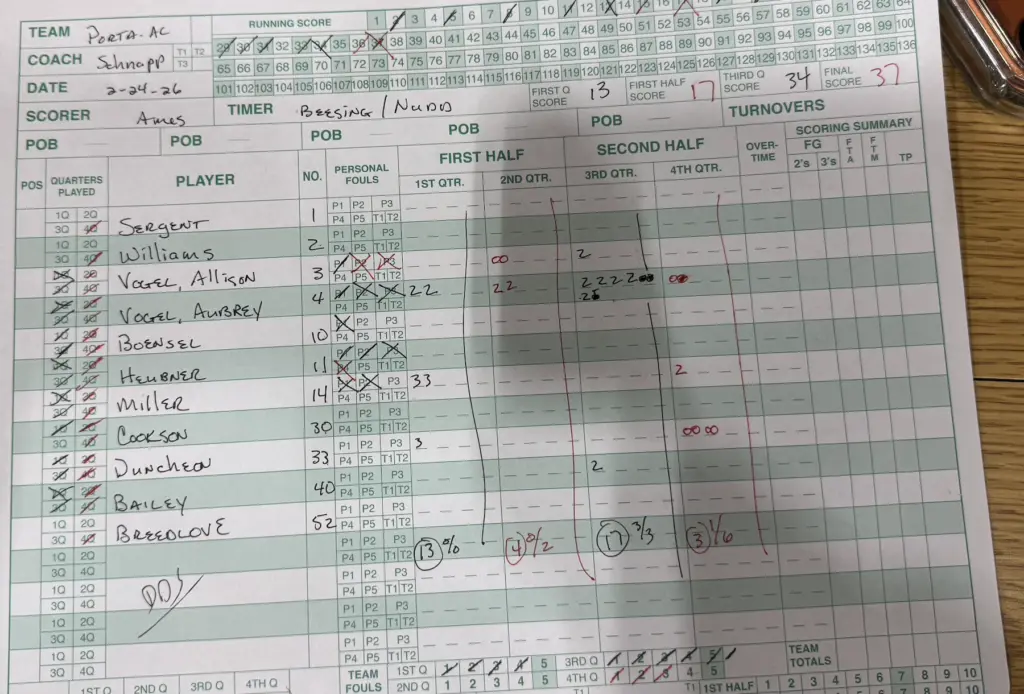 TEAM PORTA-AC
RUNNING SCORE 1 2 3 4 5 6 7 8 9 10 11 12 13 14 15 16
29 30 31 32 33 34 35 36 37 38 39 40 41 42 43 44 45 46 47 48 49 50 51 52 53 54 55 56 57 58 59 60 61 62 63 64
COACH Schnapp T1 T2 T3
65 66 67 68 69 70 71 72 73 74 75 76 77 78 79 80 81 82 83 84 85 86 87 88 89 90 91 92 93 94 95 96 97 98 99 100
DATE 2-24-26
101 102 103 104 105 106 107 108 109 110 111 112 113 114 115 116 117 118 119 120 121 122 123 124 125 126 127 128 129 130 131 132 133 134 135 136
SCORER Ames
TIMER BEESING / NUDO
FIRST Q SCORE 13
FIRST HALF SCORE 17
THIRD Q SCORE 34
FINAL SCORE 37
POB POB POB POB POB TURNOVERS
POS
QUARTERS PLAYED
PLAYER
NO.
PERSONAL FOULS
FIRST HALF
1ST QTR. 2ND QTR.
SECOND HALF
3RD QTR. 4TH QTR.
OVER-TIME
SCORING SUMMARY
FG 2's 3's FTA FTM TP
1Q 2Q 3Q 4Q SERGENT 1 P1 P2 P3 P4 P5 T1 T2
1Q 2Q 3Q 4Q WILLIAMS 2 P1 P2 P3 P4 P5 T1 T2 00 2
1Q 2Q 3Q 4Q VOGEL, ALLISON 3 P1 P2 P3 P4 P5 T1 T2 22 22 2222
1Q 2Q 3Q 4Q VOGEL, AUBREY 4 P1 P2 P3 P4 P5 T1 T2
1Q 2Q 3Q 4Q BOENSEL 10 P1 P2 P3 P4 P5 T1 T2
1Q 2Q 3Q 4Q HEUBNER 11 P1 P2 P3 P4 P5 T1 T2 33 2
1Q 2Q 3Q 4Q MILLER 14 P1 P2 P3 P4 P5 T1 T2
1Q 2Q 3Q 4Q COOKSON 30 P1 P2 P3 P4 P5 T1 T2 3 00 00
1Q 2Q 3Q 4Q DUNCHEON 33 P1 P2 P3 P4 P5 T1 T2 2
1Q 2Q 3Q 4Q BAILEY 40 P1 P2 P3 P4 P5 T1 T2
1Q 2Q 3Q 4Q BREEDLOVE 52 P1 P2 P3 P4 P5 T1 T2 13 0/0 4 0/2 17 3/3 3 1/6
1Q 2Q 3Q 4Q P1 P2 P3 P4 P5 T1 T2
1Q 2Q 3Q 4Q P1 P2 P3 P4 P5 T1 T2
1Q 2Q 3Q 4Q P1 P2 P3 P4 P5 T1 T2
1Q 2Q 3Q 4Q P1 P2 P3 P4 P5 T1 T2
TEAM FOULS
1ST Q 1 2 3 4 5 3RD Q 1 2 3 4 5
2ND Q 1 2 3 4 5 4TH Q 1 2 3 4 5
TEAM TOTALS
1ST Q 2ND Q 3RD Q 4TH Q
T1 T1 1ST HALF 1 2 3 4 5 6 7 8 9 10